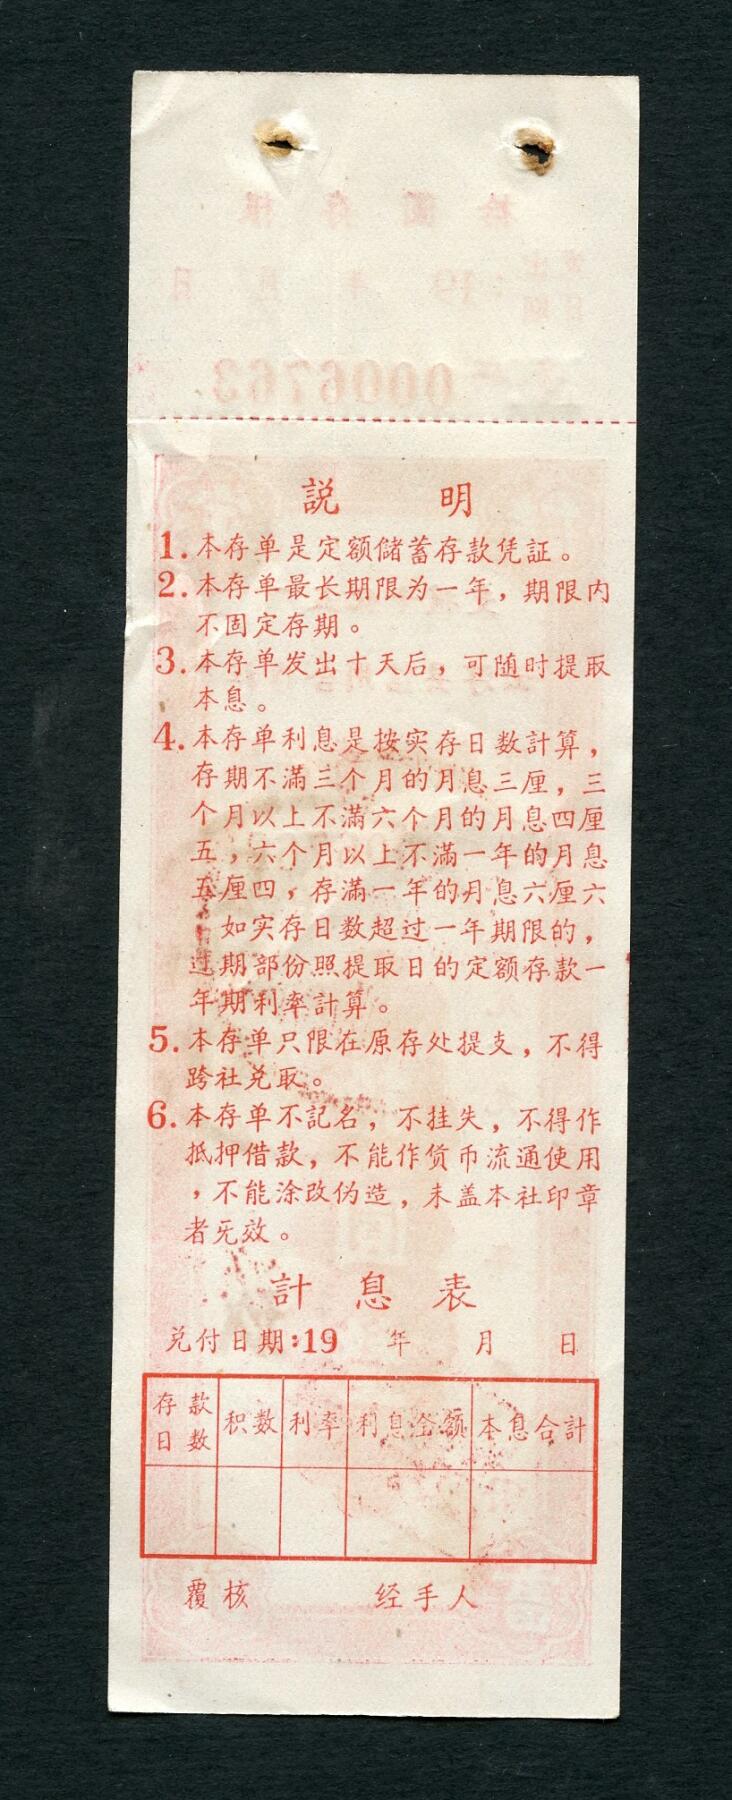 説 明
1. 本存单是定额儲蓄存款凭証。
2. 本存单最长期限为一年，期限内
不固定存期。
3. 本存单发出十天后，可随时提取
本息。
4. 本存单利息是按实存日数計算，
存期不滿三个月的月息三厘，三
个月以上不滿六个月的月息四厘
五，六个月以上不滿一年的月息
五厘四，存滿一年的月息六厘六
，如实存日数超过一年期限的，
过期部份照提取日的定额存款一
年期利率計算。
5. 本存单只限在原存处提支，不得
跨社兑取。
6. 本存单不記名，不挂失，不得作
抵押借款，不能作货币流通使用
，不能涂改伪造，未盖本社印章
者旡效。
計 息 表
兑付日期:19 年 月 日
存款日数 积数 利率 利息金额 本息合計
覆核 经手人